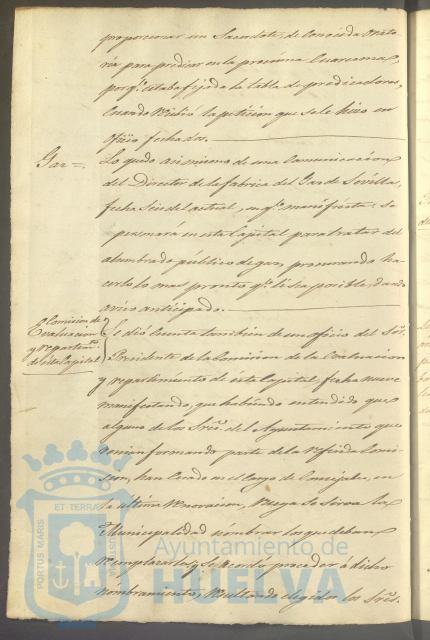 proporcionar un Sacerdote, de conocida Orato
ria para predicar en la procsima Cuaresma,
porqe. estaba fijada la tabla de predicadores,
cuando recibió la peticion que se le hizo en
oficio fecha dos.
Gas =
Lo quedó asi mismo de una comunicacion
del Director de la fabrica del Gas de Sevilla,
fecha seis del actual, en qe. manifiesta: se
personará en esta Capital para tratar del
alumbrado público de gas, procurando ha-
cerlo lo mas pronto qe. le sea posible, dando
aviso anticipado.
Comision de
evaluacion
y repartimto.
de esta Capital
Se dió cuenta tambien de un oficio del Sor.
Presidente de la Comision de la Evaluacion
y repartimiento de esta Capital, fecha nueve
manifestando, que habiendo entendido que
alguno de los Sres. del Ayuntamiento que
venian formando parte de la referida Comi-
sion, han cesado en el cargo de Concejales, en
la última renovacion, ruega se sirva la
Municipalidad nombrar los que deban
reemplazarlos, y se acordó proceder á dicho
nombramiento, resultando elegidos los Sres.
PORTUS MARIS
ET TERRAE
Ayuntamiento de
HUELVA